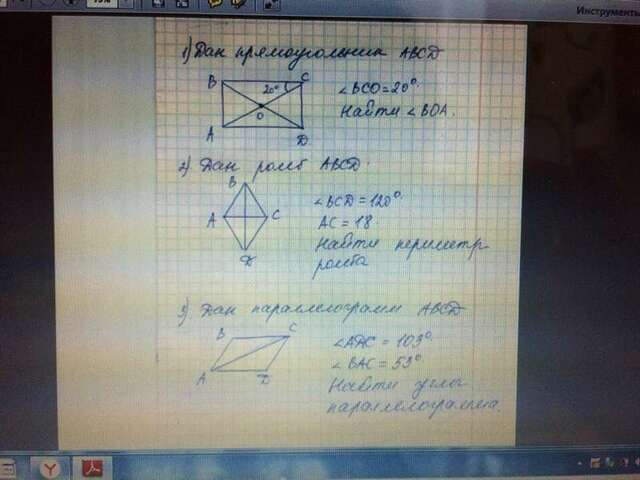 Инструменты
1) Дан прямоугольник ABCD
B
C
20°
O
A
D
∠BCO = 20°
Найти ∠BOA.
2) Дан ромб ABCD.
B
A
C
D
∠BCD = 120°
AC = 18
Найти периметр
ромба
3) Дан параллелограмм ABCD
B
C
A
D
∠ADC = 103°
∠BAC = 53°
Найти углы
параллелограмма.